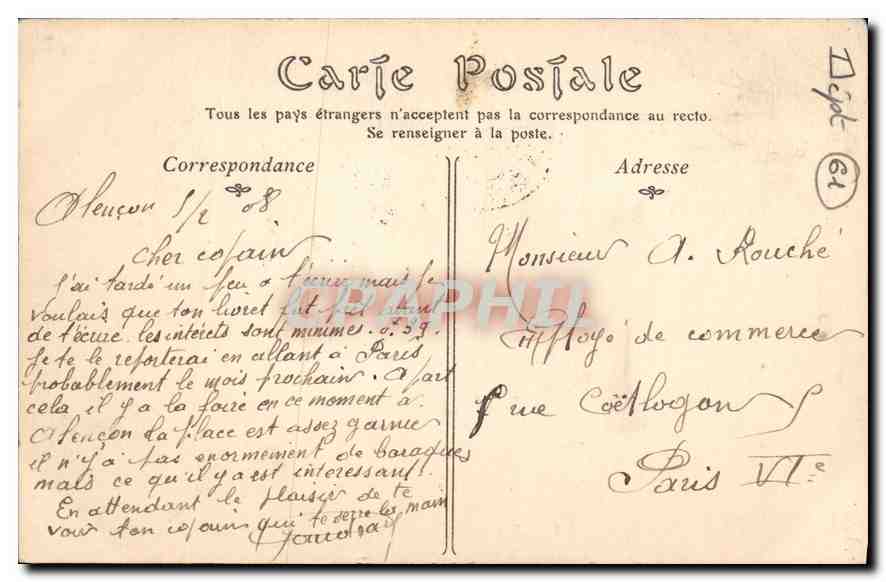 Carte Postale
Tous les pays étrangers n'acceptent pas la correspondance au recto.
Se renseigner à la poste.
Correspondance
Alençon 5/2 08
Cher copain
J'ai tardé un peu a t'écrire mais je
voulais que ton livret fut prêt avant
de t'écrire. les intérets sont minimes. 0f39.
je te le reporterai en allant à Paris
probablement le mois prochain. Apart
cela il y a la foire en ce moment à
Alençon la place est assez garnie
il n'y a pas enormement de baraques
mais ce qu'il y a est interessant.
En attendant le plaisir de te
voir ton copain qui te serre la main
Adresse
Monsieur A. Rouché
Employé de commerce
rue Coëtlogon
Paris VIe
Dépt 61
CPAPHIL